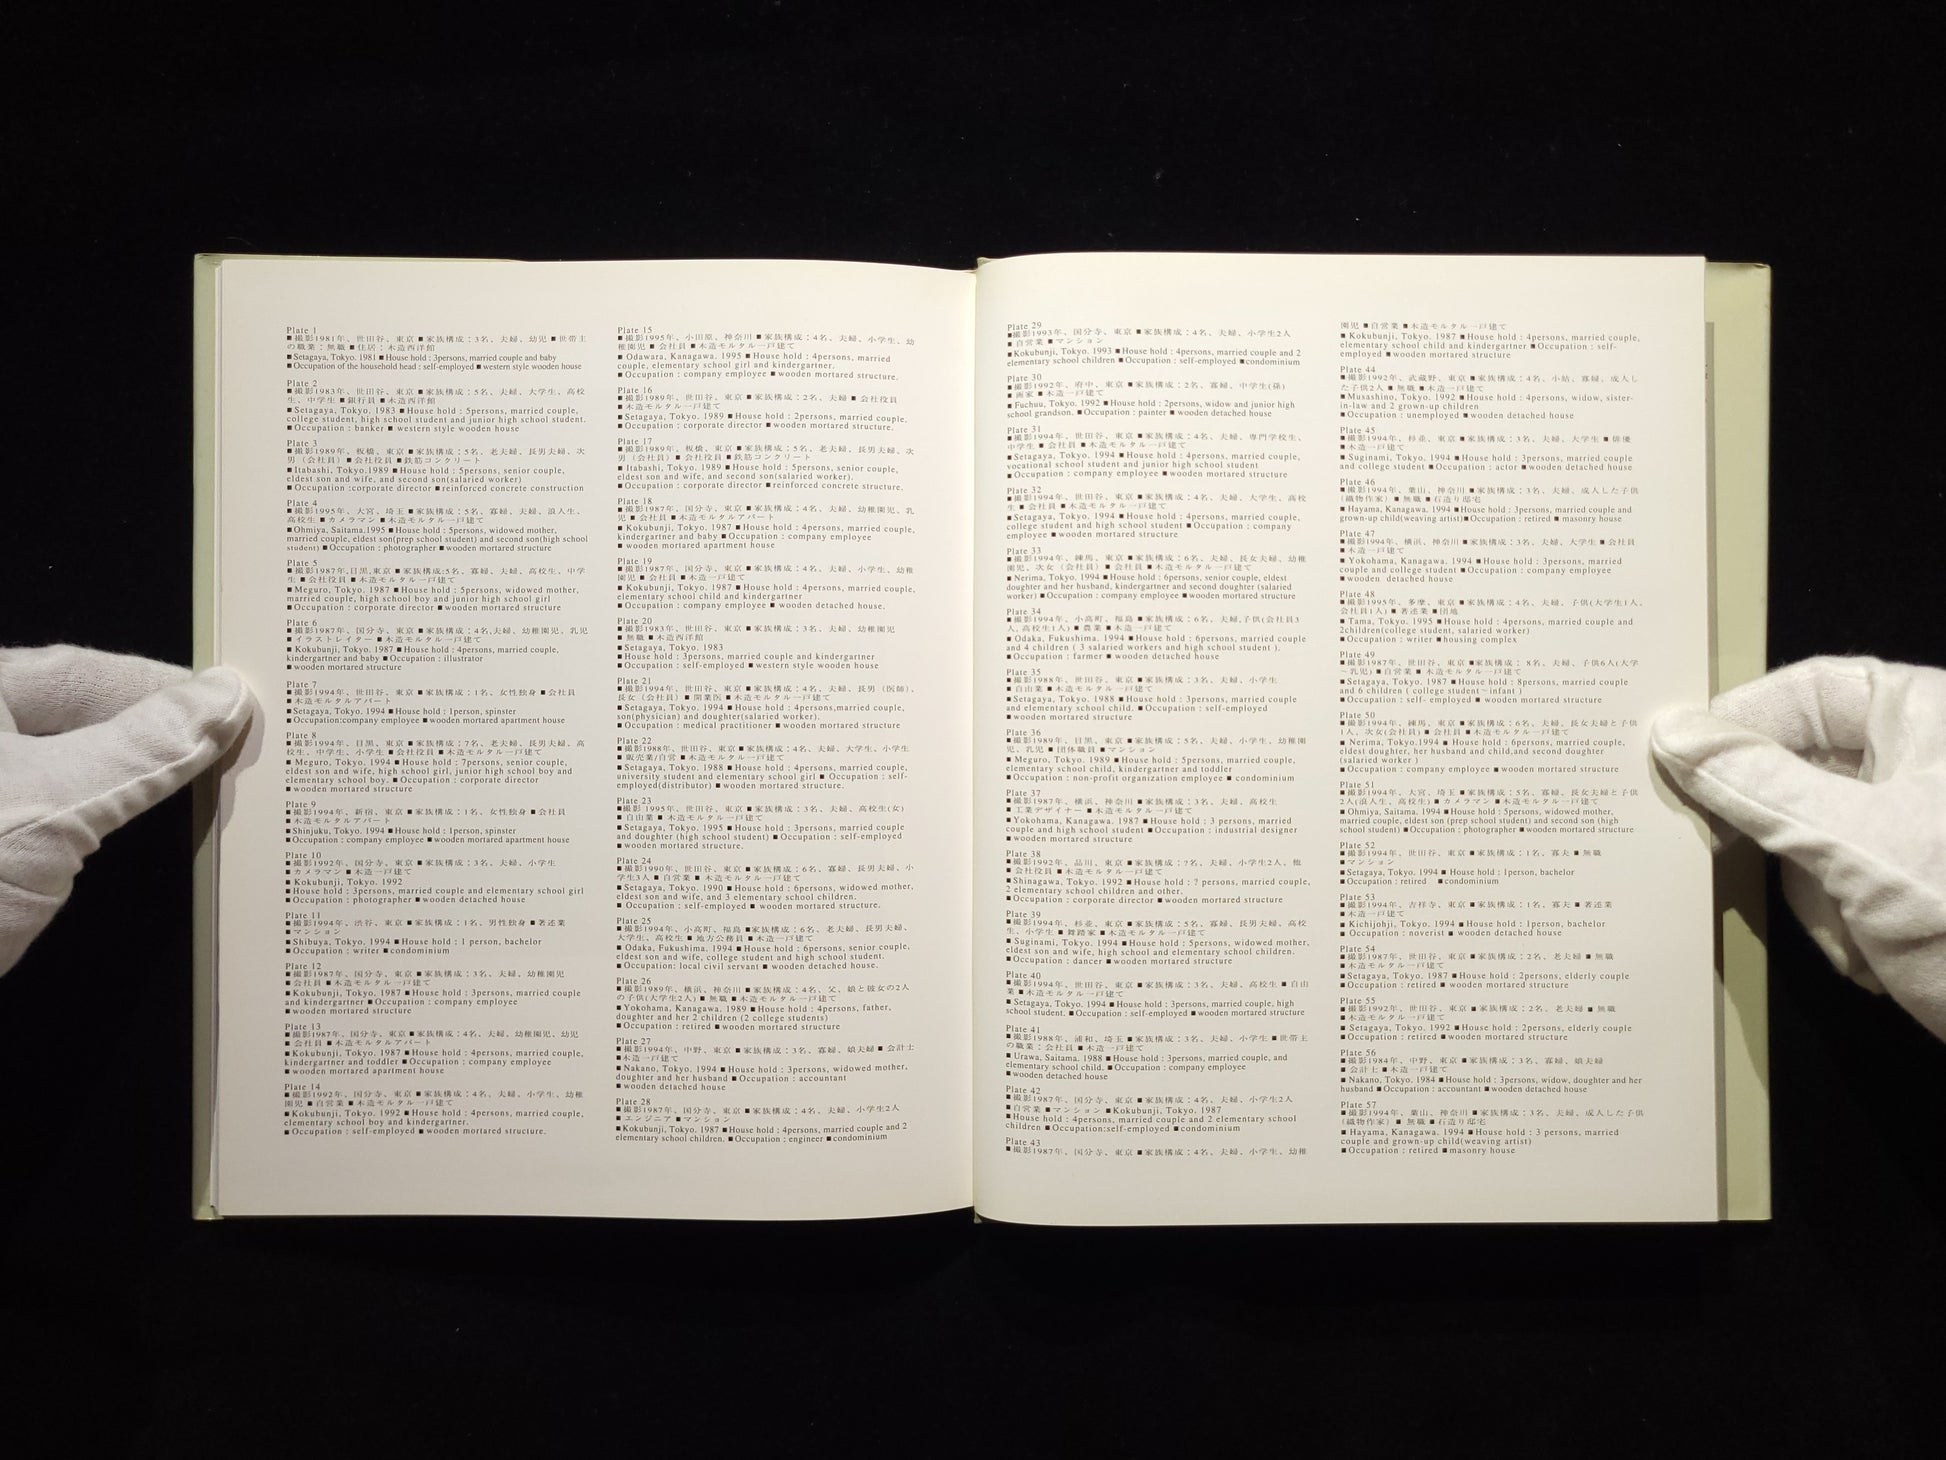 Plate 1
■撮影1981年、世田谷、東京 ■家族構成:3名、夫婦、幼児 ■世帯主
の職業:無職 ■住居:木造西洋館
■Setagaya, Tokyo. 1981 ■House hold : 3persons, married couple and baby
■Occupation of the household head : self-employed ■ western style wooden house
Plate 2
■撮影1983年、世田谷、東京 ■家族構成:5名、夫婦、大学生、高校
生、中学生 ■銀行員 ■木造西洋館
■Setagaya, Tokyo. 1983 ■House hold : 5persons, married couple,
college student, high school student and junior high school student.
■Occupation : banker ■ western style wooden house
Plate 3
■撮影1989年、板橋、東京 ■家族構成:5名、老夫婦、長男夫婦、次
男(会社員) ■会社役員 ■鉄筋コンクリート
■Itabashi, Tokyo.1989 ■House hold : 5persons, senior couple,
eldest son and wife, and second son(salaried worker)
■Occupation :corporate director ■reinforced concrete construction
Plate 4
■撮影1995年、大宮、埼玉 ■家族構成:5名、寡婦、夫婦、浪人生、
高校生 ■カメラマン ■木造モルタル一戸建て
■Ohmiya, Saitama.1995 ■House hold : 5persons, widowed mother,
married couple, eldest son(prep school student) and second son(high school
student) ■Occupation : photographer ■wooden mortared structure
Plate 5
■撮影1987年,目黒,東京 ■家族構成:5名、寡婦、夫婦、高校生、中学
生 ■会社役員 ■木造モルタル一戸建て
■Meguro, Tokyo. 1987 ■House hold : 5persons, widowed mother,
married couple, high school boy and junior high school girl
■Occupation : corporate director ■wooden mortared structure
Plate 6
■撮影1987年、国分寺、東京 ■家族構成:4名,夫婦、幼稚園児、乳児
■イラストレイター ■木造モルタル一戸建て
■Kokubunji, Tokyo. 1987 ■House hold : 4persons, married couple,
kindergartner and baby ■Occupation : illustrator
■wooden mortared structure
Plate 7
■撮影1994年、世田谷、東京 ■家族構成:1名、女性独身 ■会社員
■木造モルタルアパート
■Setagaya, Tokyo. 1994 ■House hold : 1person, spinster
■Occupation:company employee ■wooden mortared apartment house
Plate 8
■撮影1994年、目黒、東京 ■家族構成:7名、老夫婦、長男夫婦、高
校生、中学生、小学生 ■会社役員 ■木造モルタル一戸建て
■Meguro, Tokyo. 1994 ■House hold : 7persons, senior couple,
eldest son and wife, high school girl, junior high school boy and
elementary school boy. ■Occupation : corporate director
■wooden mortared structure
Plate 9
■撮影1994年、新宿、東京 ■家族構成:1名、女性独身 ■会社員
■木造モルタルアパート
■Shinjuku, Tokyo. 1994 ■House hold : 1person, spinster
■Occupation : company employee ■wooden mortared apartment house
Plate 10
■撮影1992年、国分寺、東京 ■家族構成:3名、夫婦、小学生
■カメラマン ■木造一戸建て
■Kokubunji, Tokyo. 1992
■House hold : 3persons, married couple and elementary school girl
■Occupation : photographer ■wooden detached house
Plate 11
■撮影1994年、渋谷、東京 ■家族構成:1名、男性独身 ■著述業
■マンション
■Shibuya, Tokyo. 1994 ■House hold : 1 person, bachelor
■Occupation : writer ■condominium
Plate 12
■撮影1987年、国分寺、東京 ■家族構成:3名、夫婦、幼稚園児
■会社員 ■木造モルタル一戸建て
■Kokubunji, Tokyo. 1987 ■House hold : 3persons, married couple
and kindergartner ■Occupation : company employee
■wooden mortared structure
Plate 13
■撮影1987年、国分寺、東京 ■家族構成:4名、夫婦、幼稚園児、幼児
■会社員 ■木造モルタルアパート
■Kokubunji, Tokyo. 1987 ■House hold : 4persons, married couple,
kindergartner and toddler ■Occupation : company employee
■wooden mortared apartment house
Plate 14
■撮影1992年、国分寺、東京 ■家族構成:4名、夫婦、小学生、幼稚
園児 ■自営業 ■木造モルタル一戸建て
■Kokubunji, Tokyo. 1992 ■House hold : 4persons, married couple,
elementary school boy and kindergartner.
■Occupation : self-employed ■wooden mortared structure.
Plate 15
■撮影1995年、小田原、神奈川 ■家族構成:4名、夫婦、小学生、幼
稚園児 ■会社員 ■木造モルタル一戸建て
■Odawara, Kanagawa. 1995 ■House hold : 4persons, married
couple, elementary school girl and kindergartner.
■Occupation : company employee ■wooden mortared structure.
Plate 16
■撮影1989年、世田谷、東京 ■家族構成:2名、夫婦 ■会社役員
■木造モルタル一戸建て
■Setagaya, Tokyo. 1989 ■House hold : 2persons, married couple.
■Occupation : corporate director ■wooden mortared structure.
Plate 17
■撮影1989年、板橋、東京 ■家族構成:5名、老夫婦、長男夫婦、次
男(会社員) ■会社役員 ■鉄筋コンクリート
■Itabashi, Tokyo. 1989 ■House hold : 5persons, senior couple,
eldest son and wife, and second son(salaried worker).
■Occupation : corporate director ■reinforced concrete structure.
Plate 18
■撮影1987年、国分寺、東京 ■家族構成:4名、夫婦、幼稚園児、乳
児 ■会社員 ■木造モルタルアパート
■Kokubunji, Tokyo. 1987 ■House hold : 4persons, married couple,
kindergartner and baby ■Occupation : company employee
■wooden mortared apartment house
Plate 19
■撮影1987年、国分寺、東京 ■家族構成:4名、夫婦、小学生、幼稚
園児 ■会社員 ■木造一戸建て
■Kokubunji, Tokyo. 1987 ■House hold : 4persons, married couple,
elementary school child and kindergartner
■Occupation : company employee ■wooden detached house.
Plate 20
■撮影1983年、世田谷、東京 ■家族構成:3名、夫婦、幼稚園児
■無職 ■木造西洋館
■Setagaya, Tokyo. 1983
■House hold : 3persons, married couple and kindergartner
■Occupation : self-employed ■western style wooden house
Plate 21
■撮影1994年、世田谷、東京 ■家族構成:4名、夫婦、長男(医師)、
長女(会社員) ■開業医 ■木造モルタル一戸建て
■Setagaya, Tokyo. 1994 ■House hold : 4persons,married couple,
son(physician) and doughter(salaried worker).
■Occupation : medical practitioner ■wooden mortared structure
Plate 22
■撮影1988年、世田谷、東京 ■家族構成:4名、夫婦、大学生、小学生
■販売業/自営 ■木造モルタル一戸建て
■Setagaya, Tokyo. 1988 ■House hold : 4persons, married couple,
university student and elementary school girl ■ Occupation : self-
employed(distributor) ■wooden mortared structure.
Plate 23
■撮影 1995年、世田谷、東京 ■家族構成:3名、夫婦、高校生(女)
■自由業 ■木造モルタル一戸建て
■Setagaya, Tokyo. 1995 ■House hold : 3persons, married couple
and doughter (high school student) ■Occupation : self-employed
■wooden mortared structure.
Plate 24
■撮影1990年、世田谷、東京 ■家族構成:6名、寡婦、長男夫婦、小
学生3人 ■自営業 ■木造モルタル一戸建て
■Setagaya, Tokyo. 1990 ■House hold : 6persons, widowed mother,
eldest son and wife, and 3 elementary children.
■Occupation : self-employed ■ wooden mortared structure.
Plate 25
■撮影1994年、小高町、福島 ■家族構成:6名、老夫婦、長男夫婦、
大学生、高校生 ■地方公務員 ■木造一戸建て
■Odaka, Fukushima. 1994 ■House hold : 6persons, senior couple,
eldest son and wife, college student and high school student.
■Occupation: local civil servant ■ wooden detached house.
Plate 26
■撮影1989年、横浜、神奈川 ■家族構成:4名、父、娘と彼女の2人
の子供(大学生2人) ■無職 ■木造モルタル一戸建て
■Yokohama, Kanagawa. 1989 ■House hold : 4persons, father,
doughter and her 2 children (2 college students)
■Occupation : retired ■wooden mortared structure
Plate 27
■撮影1994年、中野、東京 ■家族構成:3名、寡婦、娘夫婦 ■会計士
■木造一戸建て
■Nakano, Tokyo. 1994 ■House hold : 3persons, widowed mother,
doughter and her husband ■Occupation : accountant
■wooden detached house
Plate 28
■撮影1987年、国分寺、東京 ■家族構成:4名、夫婦、小学生2人
■エンジニア ■マンション
■Kokubunji, Tokyo. 1987 ■House hold : 4persons, married couple and 2
elementary school children. ■Occupation : engineer ■condominium
Plate 29
■撮影1993年、国分寺、東京 ■家族構成:4名、夫婦、小学生2人
■自営業 ■マンション
■Kokubunji, Tokyo. 1993 ■House hold : 4persons, married couple and 2
elementary school children ■Occupation : self-employed ■condominium
Plate 30
■撮影1992年、府中、東京 ■家族構成:2名、寡婦、中学生(孫)
■画家 ■木造一戸建て
■Fuchuu, Tokyo. 1992 ■House hold : 2persons, widow and junior high
school grandson. ■Occupation : painter ■ wooden detached house
Plate 31
■撮影1994年、世田谷、東京 ■家族構成:4名、夫婦、専門学校生、
中学生 ■会社員 ■木造モルタル一戸建て
■Setagaya, Tokyo. 1994 ■House hold : 4persons, married couple,
vocational school student and junior high school student
■Occupation : company employee ■wooden mortared structure
Plate 32
■撮影1994年、世田谷、東京 ■家族構成:4名、夫婦、大学生、高校
生 ■会社員 ■木造モルタル一戸建て
■Setagaya, Tokyo. 1994 ■House hold : 4persons, married couple,
college student and high school student ■Occupation : company
employee ■wooden mortared structure
Plate 33
■撮影1994年、練馬、東京 ■家族構成:6名、夫婦、長女夫婦、幼稚
園児、次女(会社員) ■会社員 ■木造モルタル一戸建て
■Nerima, Tokyo. 1994 ■House hold : 6persons, senior couple, eldest
doughter and her husband, kindergartner and second doughter (salaried
worker) ■Occupation : company employee ■wooden mortared structure
Plate 34
■撮影1994年、小高町、福島 ■家族構成:6名、夫婦,子供(会社員3
人、高校生1人) ■農業 ■木造一戸建て
■Odaka, Fukushima. 1994 ■House hold : 6persons, married couple
and 4 children ( 3 salaried workers and high school student ).
■Occupation : farmer ■wooden detached house
Plate 35
■撮影1988年、世田谷、東京 ■家族構成:3名、夫婦、小学生
■自由業 ■木造モルタル一戸建て
■Setagaya, Tokyo. 1988 ■House hold : 3persons, married couple
and elementary school child. ■Occupation : self-employed
■wooden mortared structure
Plate 36
■撮影1989年、目黒、東京 ■家族構成:5名、夫婦、小学生、幼稚園
児、乳児 ■団体職員 ■マンション
■Meguro, Tokyo. 1989 ■House hold : 5persons, married couple,
elementary school child, kindergartner and toddler
■Occupation : non-profit organization employee ■condominium
Plate 37
■撮影1987年、横浜、神奈川 ■家族構成:3名、夫婦、高校生
■工業デザイナー ■木造モルタル一戸建て
■Yokohama, Kanagawa. 1987 ■House hold : 3 persons, married
couple and high school student ■Occupation : industrial designer
■wooden mortared structure
Plate 38
■撮影1992年、品川、東京 ■家族構成:?名、夫婦、小学生2人、他
■会社役員 ■木造モルタル一戸建て
■Shinagawa, Tokyo. 1992 ■House hold : ? persons, married couple,
2 elementary school children and other.
■Occupation : corporate director ■wooden mortared structure
Plate 39
■撮影1994年、杉並、東京 ■家族構成:5名、寡婦、長男夫婦、高校
生、小学生 ■舞踏家 ■木造モルタル一戸建て
■Suginami, Tokyo. 1994 ■House hold : 5persons, widowed mother,
eldest son and wife, high school and elementary school children.
■Occupation : dancer ■wooden mortared structure
Plate 40
■撮影1994年、世田谷、東京 ■家族構成:3名、夫婦、高校生 ■自由
業 ■木造モルタル一戸建て
■Setagaya, Tokyo. 1994 ■House hold : 3persons, married couple, high
school student. ■Occupation : self-employed ■wooden mortared structure
Plate 41
■撮影1988年、浦和、埼玉 ■家族構成:3名、夫婦、小学生 ■世帯主
の職業:会社員 ■木造モルタル一戸建て
■Urawa, Saitama. 1988 ■House hold : 3persons, married couple, and
elementary school child. ■Occupation : company employee
■wooden detached house
Plate 42
■撮影1992年、国分寺、東京 ■家族構成:4名、夫婦、小学生2人
■自営業 ■マンション ■Kokubunji, Tokyo. 1987
■House hold : 4persons, married couple and 2 elementary school
children ■Occupation:self-employed ■condominium
Plate 43
■撮影1987年、国分寺、東京 ■家族構成:4名、夫婦、小学生、幼稚
園児 ■自営業 ■木造モルタル一戸建て
■Kokubunji, Tokyo. 1987 ■House hold : 4persons, married couple,
elementary school child and kindergartner ■Occupation : self-
employed ■wooden mortared structure
Plate 44
■撮影1992年、武蔵野、東京 ■家族構成:4名、小姑、寡婦、成人し
た子供2人 ■無職 ■木造一戸建て
■Musashino, Tokyo. 1992 ■House hold : 4persons, widow, sister-
in-law and 2 grown-up children
■Occupation : unemployed ■wooden detached house
Plate 45
■撮影1994年、杉並、東京 ■家族構成:3名、夫婦、大学生 ■俳優
■木造一戸建て
■Suginami, Tokyo. 1994 ■House hold : 3persons, married couple
and college student ■Occupation : actor ■wooden detached house
Plate 46
■撮影1994年、葉山、神奈川 ■家族構成:3名、夫婦、成人した子供
(織物作家) ■無職 ■石造り邸宅
■Hayama, Kanagawa. 1994 ■House hold : 3persons, married couple and
grown-up child(weaving artist)■Occupation : retired ■ masonry house
Plate 47
■撮影1994年、横浜、神奈川 ■家族構成:3名、夫婦、大学生 ■会社員
■木造一戸建て
■Yokohama, Kanagawa. 1994 ■House hold : 3persons, married
couple and college student ■Occupation : company employee
■wooden detached house
Plate 48
■撮影1995年、多摩、東京 ■家族構成:4名、夫婦、子供(大学生1人,
会社員1人) ■著述業 ■団地
■Tama, Tokyo. 1995 ■House hold : 4persons, married couple and
2children(college student, salaried worker)
■Occupation : writer ■housing complex
Plate 49
■撮影1987年、世田谷、東京 ■家族構成: 8名、夫婦、子供6人(大学
~乳児) ■自営業 ■木造モルタル一戸建て
■Setagaya, Tokyo. 1987 ■House hold : 8persons, married couple
and 6 children ( college student~infant )
■Occupation : self- employed ■wooden mortared structure
Plate 50
■撮影1994年、練馬、東京 ■家族構成:6名、夫婦、長女夫婦と子供
1人、次女(会社員) ■会社員 ■木造モルタル一戸建て
■Nerima, Tokyo.1994 ■ House hold : 6persons, married couple,
eldest doughter, her husband and child,and second doughter
(salaried worker )
■Occupation : company employee ■wooden mortared structure
Plate 51
■撮影1994年、大宮、埼玉 ■家族構成:5名、寡婦、長女夫婦と子供
2人(浪人生、高校生) ■カメラマン ■木造モルタル一戸建て
■Ohmiya, Saitama. 1994 ■House hold : 5persons, widowed mother,
married couple, eldest son (prep school student) and second son (high
school student) ■Occupation : photographer ■wooden mortared structure
Plate 52
■撮影1994年、世田谷、東京 ■家族構成:1名、寡夫 ■無職
■マンション
■Setagaya, Tokyo. 1994 ■ House hold : 1person, bachelor
■Occupation : retired ■condominium
Plate 53
■撮影1994年、吉祥寺、東京 ■家族構成:1名、寡夫 ■著述業
■木造一戸建て
■Kichijohji, Tokyo. 1994 ■House hold : 1person, bachelor
■Occupation : noverist ■wooden detached house
Plate 54
■撮影1987年、世田谷、東京 ■家族構成:2名、老夫婦 ■無職
■木造モルタル一戸建て
■Setagaya, Tokyo. 1987 ■House hold : 2persons, elderly couple
■Occupation : retired ■wooden mortared structure
Plate 55
■撮影1992年、世田谷、東京 ■家族構成:2名、老夫婦 ■無職
■木造モルタル一戸建て
■Setagaya, Tokyo. 1992 ■House hold : 2persons, elderly couple
■Occupation : retired ■wooden mortared structure
Plate 56
■撮影1984年、中野、東京 ■家族構成:3名、寡婦、娘夫婦
■会計士 ■木造一戸建て
■Nakano, Tokyo. 1984 ■House hold : 3persons, widow, doughter and her
husband ■Occupation : accountant ■wooden detached house
Plate 57
■撮影1994年、葉山、神奈川 ■家族構成:3名、夫婦、成人した子供
(織物作家) ■無職 ■石造り邸宅
■Hayama, Kanagawa. 1994 ■House hold : 3 persons, married
couple and grown-up child(weaving artist)
■Occupation : retired ■masonry house